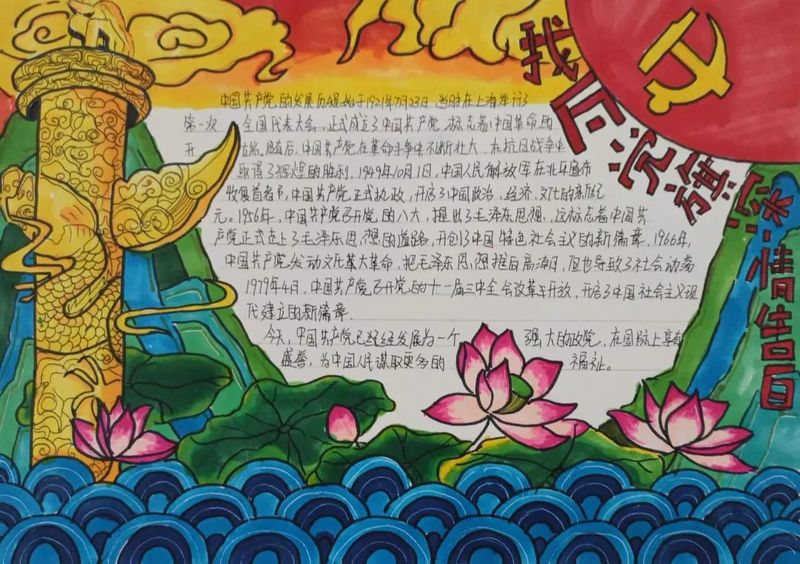 我向党徽深情告白
中国共产党的发展历程始于1921年7月23日,当时在上海举行了
第一次 全国代表大会,正式成立了中国共产党,标志着中国革命的
开 端。随后,中国共产党在革命斗争中不断壮大,在抗日战争中
取得了辉煌的胜利,1949年10月1日,中国人民解放军在北平宣布
收复首者,中国共产党正式执政,开启了中国政治、经济、文化的新纪
元。1956年,中国共产党召开党的八大,提出了毛泽东思想,这标志着中国共
产党正式走上了毛泽东思想的道路,开创了中国特色社会主义的新篇章,1966年,
中国共产党发动文化革大革命,把毛泽东思想推向高潮,但也导致了社会动荡
1979年4月,中国共产党召开党的十一届三中全会改革开放,开启了中国社会主义现
代建立的新篇章.
今天,中国共产党已经经发展为一个 强大的政党,在国际上享有
盛誉,为中国人民谋取更多的 福祉。